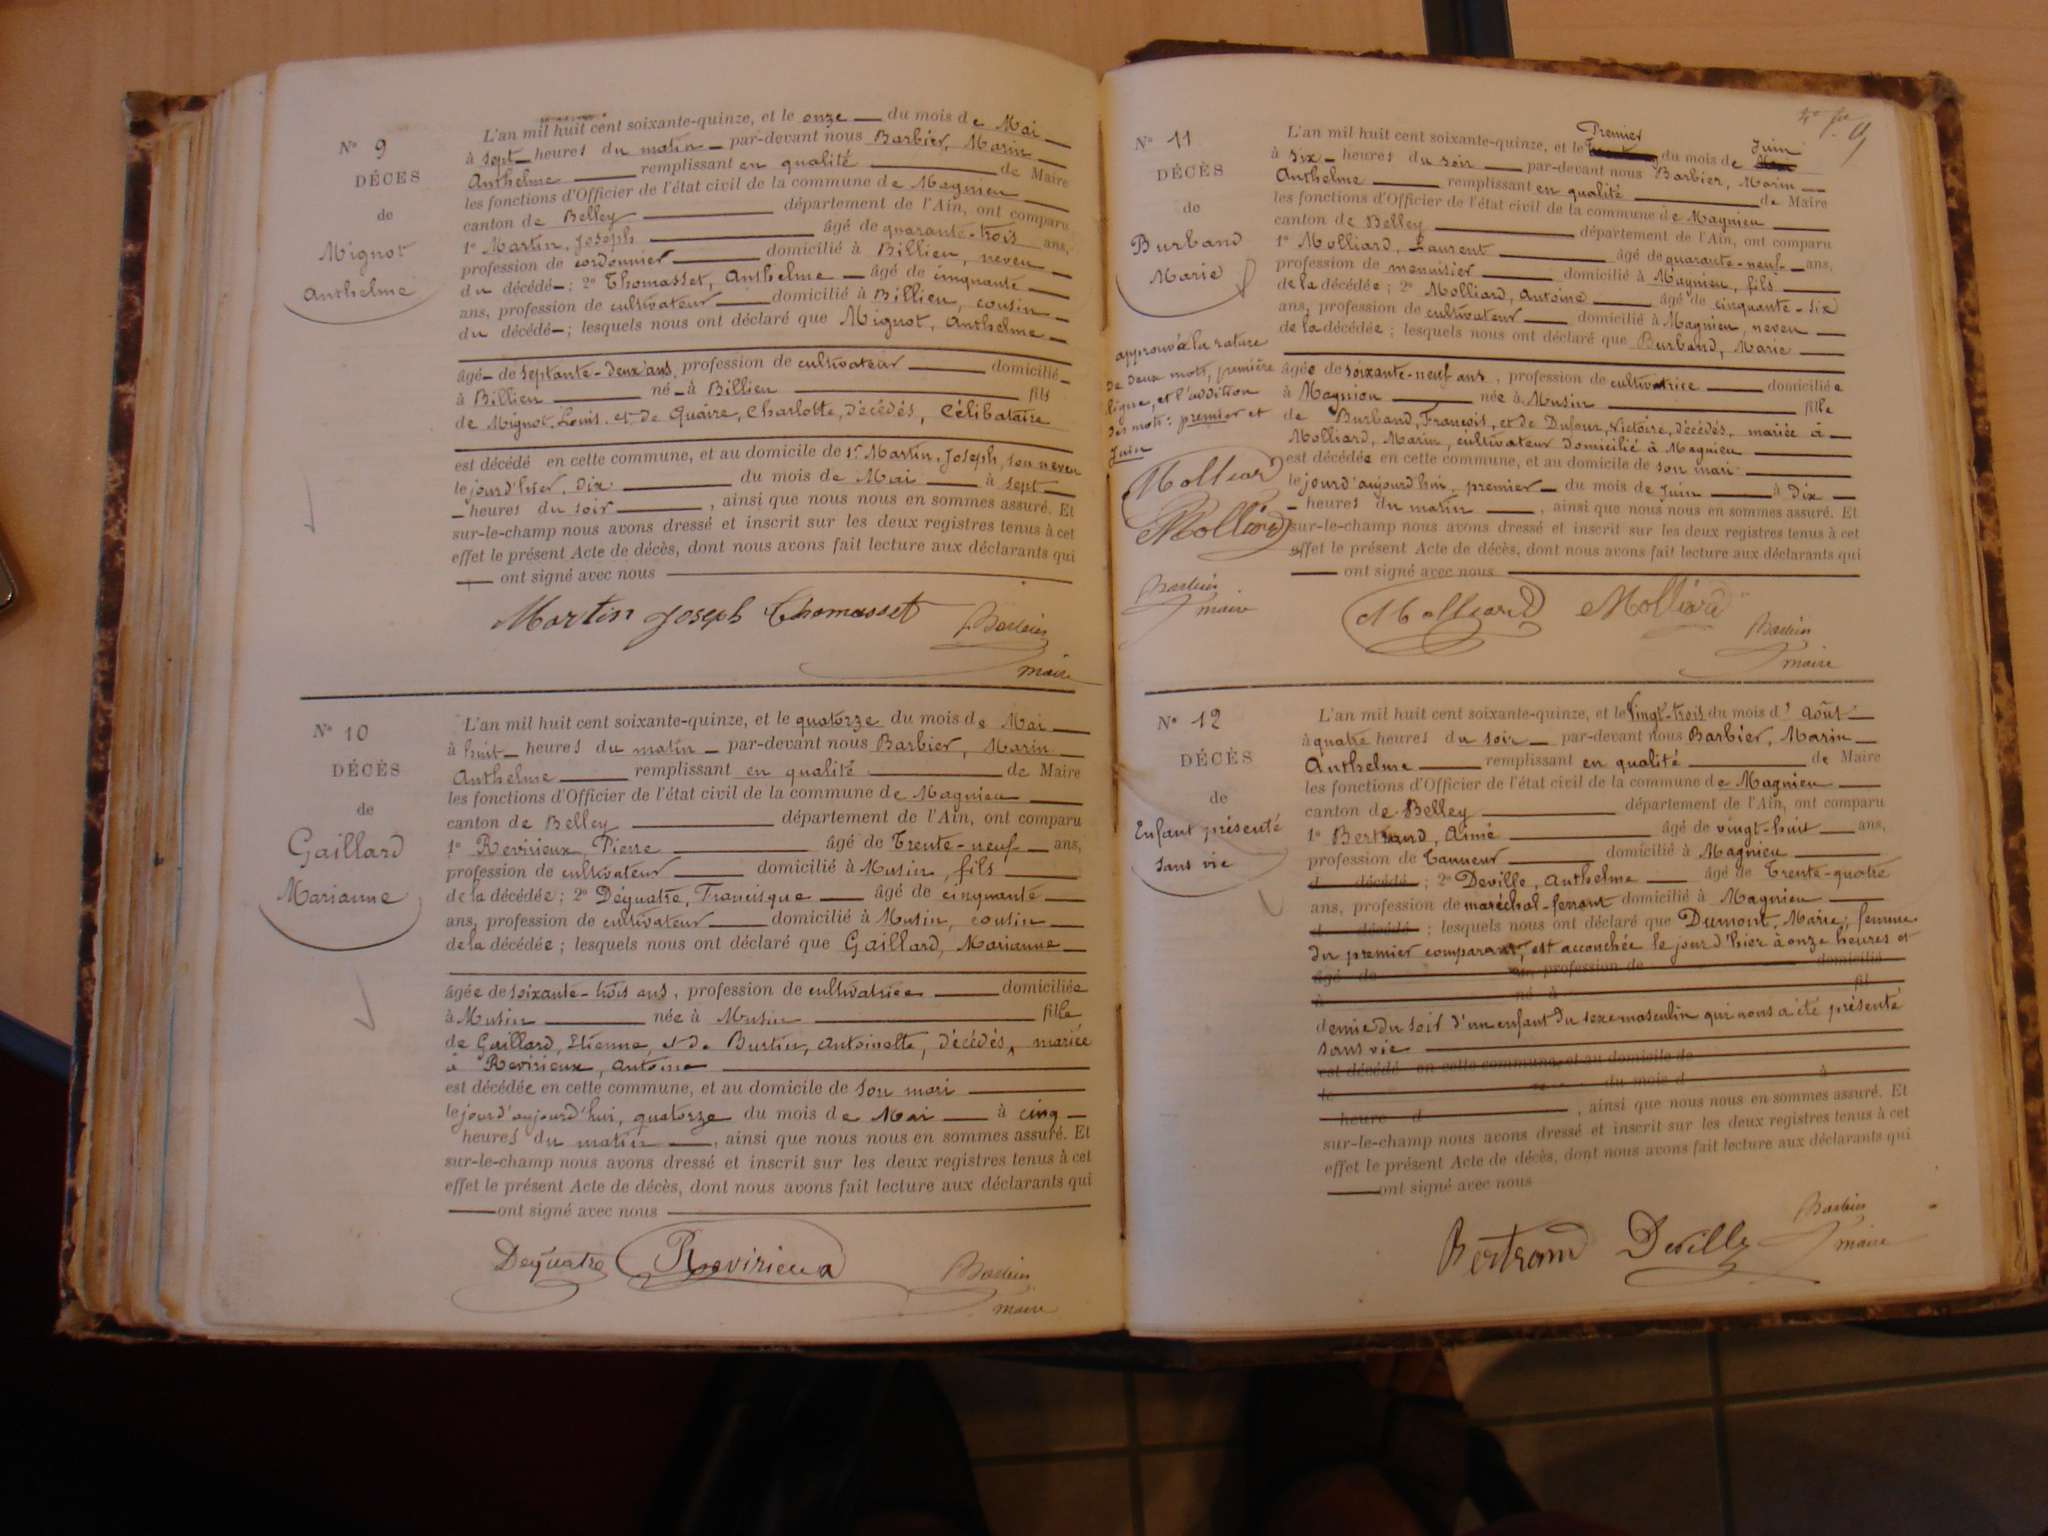 N° 9
DÉCÈS
de
Mignot
Anthelme
L'an mil huit cent soixante-quinze, et le onze du mois de Mai
à sept heures du matin par-devant nous Barbier, Marin
Anthelme remplissant en qualité de Maire
les fonctions d'Officier de l'état civil de la commune de Magnieu
canton de Belley département de l'Ain, ont comparu
1° Martin, Joseph âgé de quarante-trois ans,
profession de cordonnier domicilié à Billieu, neveu
du décédé ; 2° Thomasset, Anthelme âgé de cinquante
ans, profession de cultivateur domicilié à Billieu, cousin
du décédé ; lesquels nous ont déclaré que Mignot, Anthelme
âgé de septante-deux ans, profession de cultivateur domicilié
à Billieu né à Billieu fils
de Mignot, Louis, et de Quaire, Charlotte, décédés, célibataire
est décédé en cette commune, et au domicile de sr Martin, Joseph, son neveu
le jour d'hier, dix du mois de Mai à sept
heures du soir , ainsi que nous nous en sommes assuré. Et
sur-le-champ nous avons dressé et inscrit sur les deux registres tenus à cet
effet le présent Acte de décès, dont nous avons fait lecture aux déclarants qui
ont signé avec nous
Martin Joseph Thomasset Barbier
maire
N° 10
DÉCÈS
de
Gaillard
Marianne
L'an mil huit cent soixante-quinze, et le quatorze du mois de Mai
à huit heures du matin par-devant nous Barbier, Marin
Anthelme remplissant en qualité de Maire
les fonctions d'Officier de l'état civil de la commune de Magnieu
canton de Belley département de l'Ain, ont comparu
1° Revirieux, Pierre âgé de Trente-neuf ans,
profession de cultivateur domicilié à Musin, fils
de la décédée ; 2° Dequatre, Francisque âgé de cinquante
ans, profession de cultivateur domicilié à Musin, cousin
de la décédée ; lesquels nous ont déclaré que Gaillard, Marianne
âgée de soixante-trois ans, profession de cultivatrice domiciliée
à Musin née à Musin fille
de Gaillard, Etienne, et de Burtin, Antoinette, décédés, mariée
à Revirieux, Antoine
est décédée en cette commune, et au domicile de son mari
le jour d'aujourd'hui, quatorze du mois de Mai à cinq
heures du matin , ainsi que nous nous en sommes assuré. Et
sur-le-champ nous avons dressé et inscrit sur les deux registres tenus à cet
effet le présent Acte de décès, dont nous avons fait lecture aux déclarants qui
ont signé avec nous
Dequatre Revirieux Barbier
maire
N° 11
DÉCÈS
de
Burband
Marie
approuvé la rature
de deux mots, première
ligne, et l'addition
des mots : premier et
Juin
Molliard
Molliard
Barbier
maire
Premier Juin
L'an mil huit cent soixante-quinze, et le du mois de
à six heures du soir par-devant nous Barbier, Marin
Anthelme remplissant en qualité de Maire
les fonctions d'Officier de l'état civil de la commune de Magnieu
canton de Belley département de l'Ain, ont comparu
1° Molliard, Laurent âgé de quarante-neuf ans,
profession de menuisier domicilié à Magnieu, fils
de la décédée ; 2° Molliard, Antoine âgé de cinquante-six
ans, profession de cultivateur domicilié à Magnieu, neveu
de la décédée ; lesquels nous ont déclaré que Burband, Marie
âgée de soixante-neuf ans, profession de cultivatrice domiciliée
à Magnieu née à Musin fille
de Burband, François, et de Dufour, Victoire, décédés, mariée à
Molliard, Marin, cultivateur domicilié à Magnieu
est décédée en cette commune, et au domicile de son mari
le jour d'aujourd'hui, premier du mois de Juin à dix
heures du matin , ainsi que nous nous en sommes assuré. Et
sur-le-champ nous avons dressé et inscrit sur les deux registres tenus à cet
effet le présent Acte de décès, dont nous avons fait lecture aux déclarants qui
ont signé avec nous
Molliard Molliard Barbier
maire
N° 12
DÉCÈS
de
Enfant présenté
sans vie
L'an mil huit cent soixante-quinze, et le Vingt-trois du mois d'août
à quatre heures du soir par-devant nous Barbier, Marin
Anthelme remplissant en qualité de Maire
les fonctions d'Officier de l'état civil de la commune de Magnieu
canton de Belley département de l'Ain, ont comparu
1° Bertrand, Aimé âgé de vingt-huit ans,
profession de Tanneur domicilié à Magnieu
d décédé ; 2° Deville, Anthelme âgé de Trente-quatre
ans, profession de maréchal-ferrant domicilié à Magnieu
d décédé ; lesquels nous ont déclaré que Dumont, Marie, femme
du premier comparant, est accouchée le jour d'hier à onze heures et
âgé de profession de domicilié
à né à fil
demie du soir d'un enfant du sexe masculin qui nous a été présenté
sans vie
est décédé en cette commune, et au domicile de
le du mois d à
heure d , ainsi que nous nous en sommes assuré. Et
sur-le-champ nous avons dressé et inscrit sur les deux registres tenus à cet
effet le présent Acte de décès, dont nous avons fait lecture aux déclarants qui
ont signé avec nous
Bertrand Deville Barbier
maire